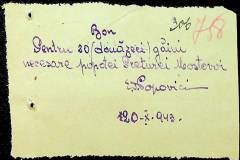 306 758
Bon
Pentru 20 (douăzeci) găini
necesare popotei Preturei Mostovoi
EPopovici
20-X-943.